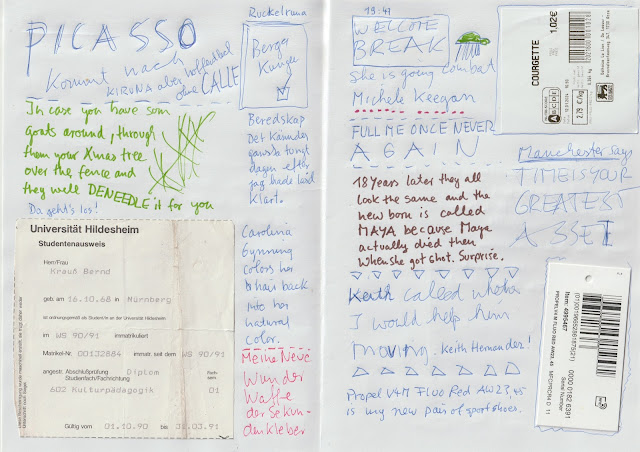 PICASSO
Kommt nach
KIRUNA aber vollgedribbelt
ohne CALLE
In case you have som
goats around, through
them your Xmas tree
over the fence and
they well DENEEDLE it for you
Da geht's los!
Universität Hildesheim
Studentenausweis
Herr/Frau
Krauß Bernd
geb. am 16.10.68 in Nürnberg
ist ordnungsgemäß als Student/in an der Universität Hildesheim
im WS 90/91 immatrikuliert
Matrikel-Nr. 00132884 immatr. seit dem WS 90/91
angestr. Abschlußprüfung Diplom
Studienfach/Fachrichtung
602 Kulturpädagogik 01
Gültig vom 01.10.90 bis 31.03.91
Ruckelrama
Berga
Kunga
Beredskap
Det kändes
ganska tungt
dagen efter
jag hade läst
klart.
Carolina
Gynning
colors her
hair back
into her
natural
color.
Meine Neue
Wunder
Waffe
der Sekun-
denkleber
19:47
WELCOME
BREAK
She is going combat
Michele Keegan
FULL ME ONCE NEVER
AGAIN
18 Years later they all
look the same and the
new born is called
MAYA because Maya
actually died then
when she got shot. Surprise.
Keith called whether
I would help him
moving. Keith Hernandez!
Propel V4M Fluo Red AW23,45
is my new pair of sport shoes.
COURGETTE
1,02€
2,79 €/kg
Manchester Says
TIME IS YOUR
GREATEST
ASSET
Item: 4895467
PROPEL V4 M FLUO RED AW23, 45
Serial Number